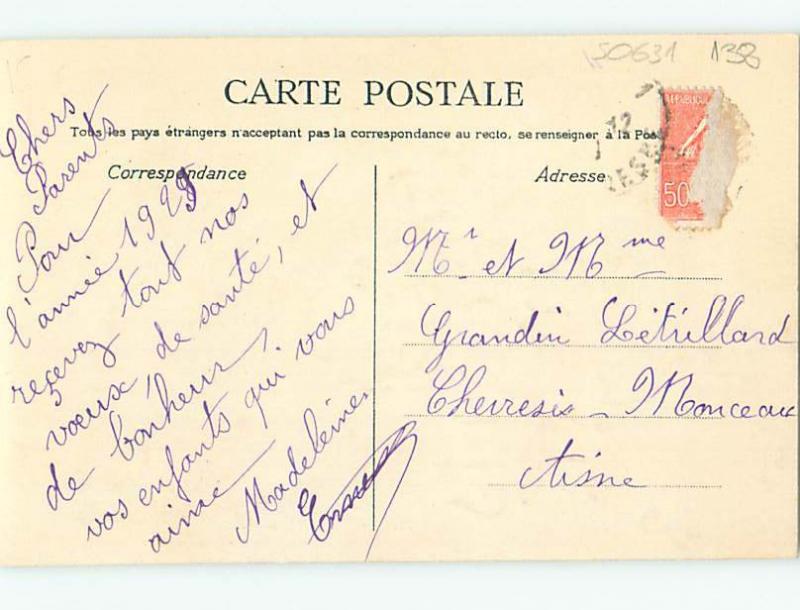 50631 138
CARTE POSTALE
Tous les pays étrangers n'acceptant pas la correspondance au recto, se renseigner à la Poste
Correspondance
Adresse
REPUBLIQUE
50
Chers
Parents
Pour
l'année 1925
recevez tout nos
vœux, de santé, et
de bonheur,
vos enfants qui vous
aime
Madeleine
Mr et Mme
Grandin Létrillard
Chevresis - Monceau
Aisne